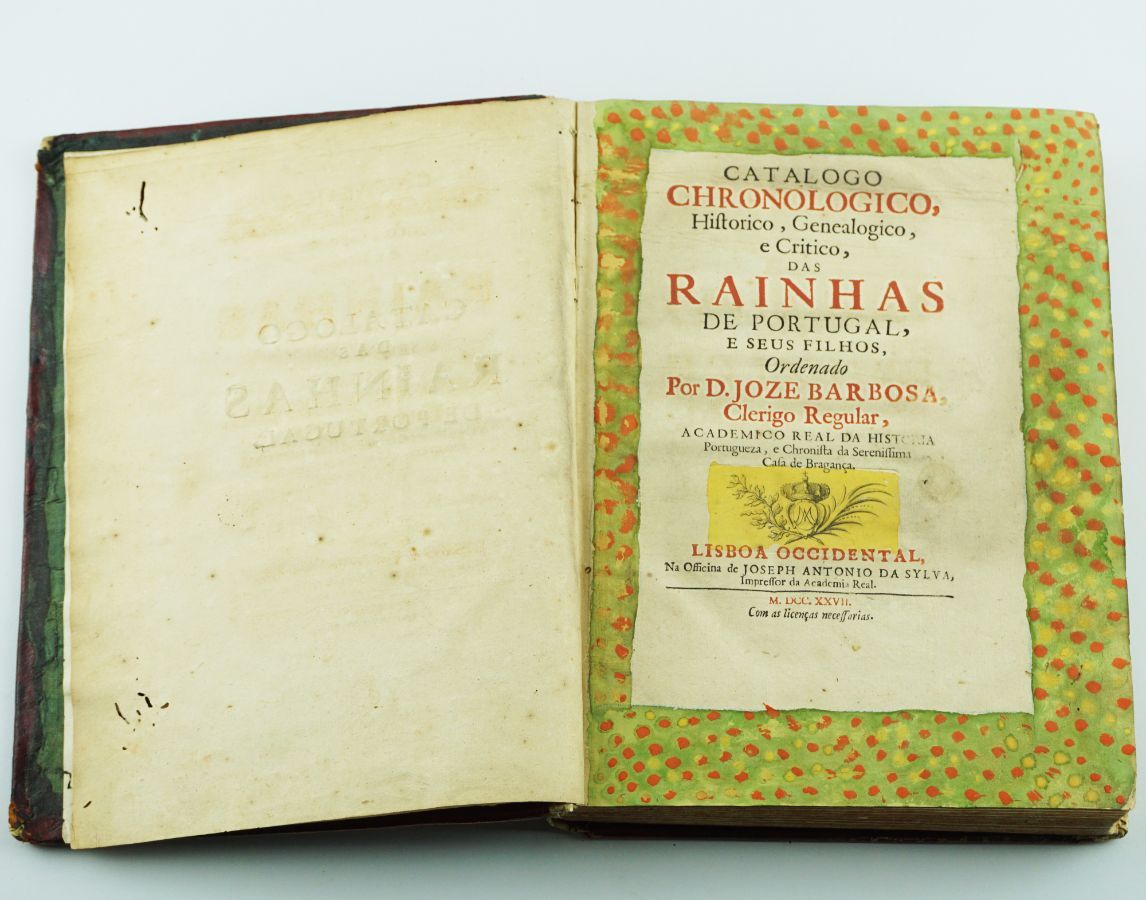 CATALOGO
CHRONOLOGICO,
Hiſtorico, Genealogico,
e Critico,
DAS
RAINHAS
DE PORTUGAL,
E SEUS FILHOS,
Ordenado
Por D. JOZE BARBOSA,
Clerigo Regular,
ACADEMICO REAL DA HISTORIA
Portugueza, e Chroniſta da Sereniſſima
Caſa de Bragança.
LISBOA OCCIDENTAL,
Na Officina de JOSEPH ANTONIO DA SYLVA,
Impreſſor da Academia Real.
M. DCC. XXVII.
Com as licenças neceſſarias.